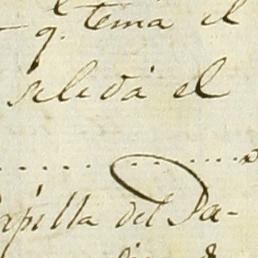 q. tema el
se le dá el
Capilla del Pa-